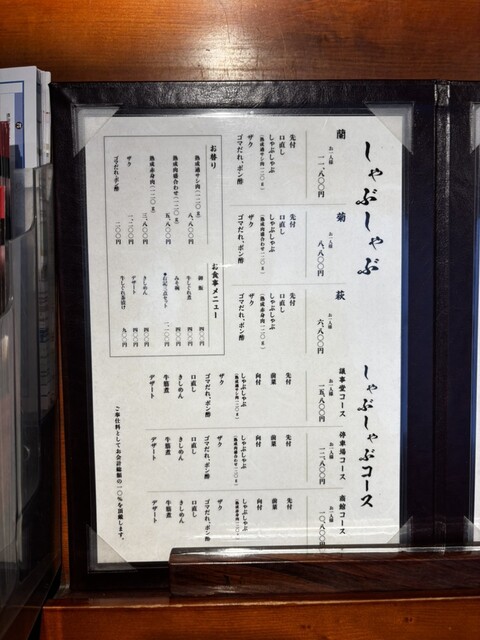 しゃぶしゃぶ
蘭
お一人様
一一、八〇〇円
先付
口直し
しゃぶしゃぶ
(熟成霜サシ肉一二〇g)
ザク
ゴマだれ、ポン酢
菊
お一人様
八、八〇〇円
先付
口直し
しゃぶしゃぶ
(熟成肉盛合わせ一二〇g)
ザク
ゴマだれ、ポン酢
萩
お一人様
六、八〇〇円
先付
口直し
しゃぶしゃぶ
(熟成赤身肉一二〇g)
ザク
ゴマだれ、ポン酢
お替り
熟成霜サシ肉(一二〇g)
八、〇〇〇円
熟成肉盛合わせ(一二〇g)
五、八〇〇円
熟成赤身肉(一二〇g)
三、八〇〇円
ザク
一、二〇〇円
ゴマだれ、ポン酢
二〇〇円
お食事メニュー
御飯
四〇〇円
牛しぐれ煮
四〇〇円
みそ椀
四〇〇円
きしめん
四〇〇円
デザート
四〇〇円
牛しぐれ茶漬け
九〇〇円
しゃぶしゃぶコース
議事堂コース
お一人様
一五、八〇〇円
先付
前菜
向付
しゃぶしゃぶ
(熟成霜サシ肉一二〇g)
ザク
ゴマだれ、ポン酢
口直し
きしめん
牛脂煮
デザート
停車場コース
お一人様
一二、八〇〇円
先付
前菜
向付
しゃぶしゃぶ
(熟成肉盛合わせ一二〇g)
ザク
ゴマだれ、ポン酢
口直し
きしめん
デザート
商館コース
お一人様
一〇、八〇〇円
先付
前菜
向付
しゃぶしゃぶ
(熟成赤身肉一二〇g)
ザク
ゴマだれ、ポン酢
口直し
きしめん
デザート
ご奉仕料としてお会計総額の一〇%を頂戴します。